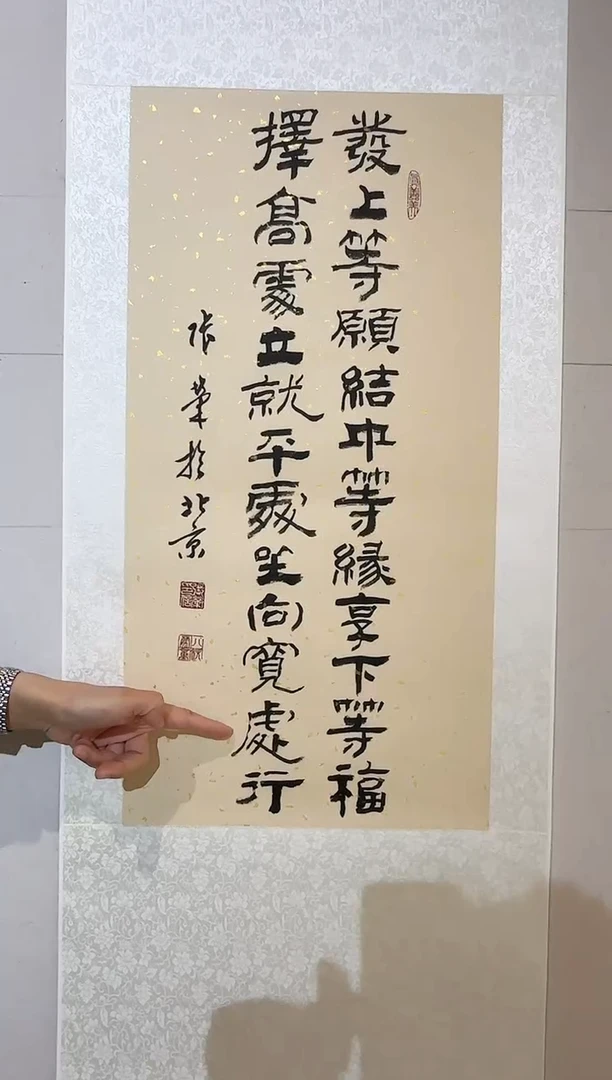 發上等願結中等緣享下等福
擇高處立就平處坐向寬處行
張榮於北京